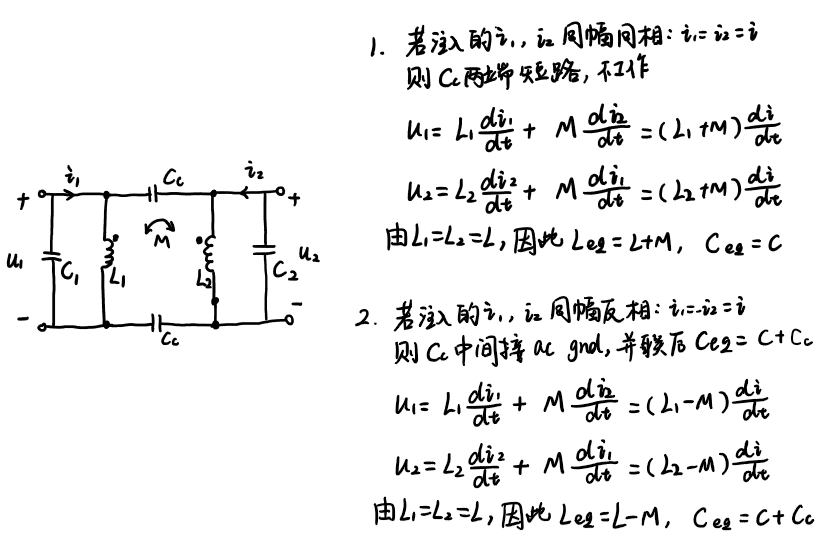 i₁
Cc
i₂
+
+
u₁
C₁
L₁
M
L₂
C₂
u₂
-
-
Cc
1. 若注入的i₁, i₂同幅同相: i₁=i₂=i
则Cc两端短路, 不工作
u₁= L₁ di₁/dt + M di₂/dt =(L₁+M) di/dt
u₂= L₂ di₂/dt + M di₁/dt =(L₂+M) di/dt
由L₁=L₂=L, 因此 Leq=L+M, Ceq=C
2. 若注入的i₁, i₂同幅反相: i₁=-i₂=i
则Cc中间接ac gnd, 并联后Ceq=C+Cc
u₁= L₁ di₁/dt + M di₂/dt =(L₁-M) di/dt
u₂= L₂ di₂/dt + M di₁/dt =(L₂-M) di/dt
由L₁=L₂=L, 因此 Leq=L-M, Ceq=C+Cc